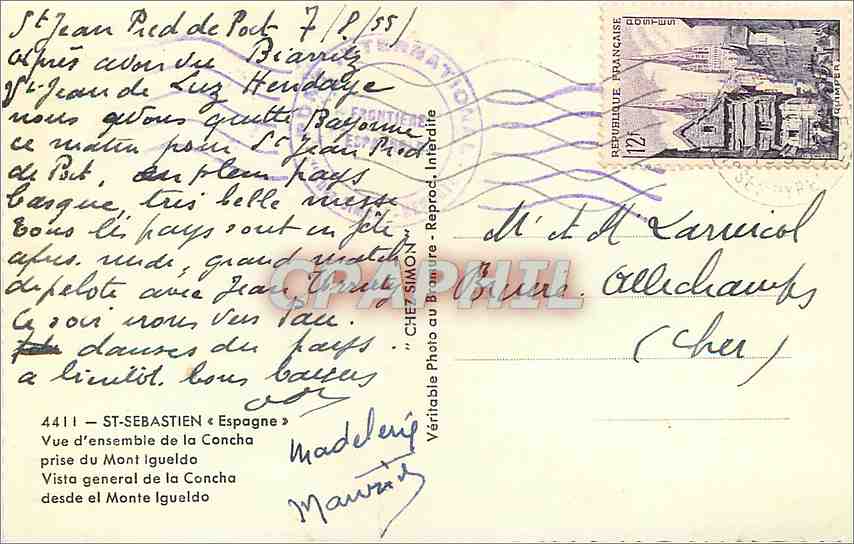 St Jean Pied de Port 7/8/55)
après avoir vu Biarritz
St-Jean de Luz Hendaye
nous avons quitté Bayonne
ce matin pour St Jean Pied
de Port, en plein pays
basque, très belle messe
tous les pays sont en fête
après midi, grand match
de pelote avec Jean
ce soir irons vers Pau.
danses du pays.
a bientôt. bons baisers
Madeleine
Maurice
4411 — ST-SEBASTIEN « Espagne »
Vue d'ensemble de la Concha
prise du Mont Igueldo
Vista general de la Concha
desde el Monte Igueldo
" CHEZ SIMON "
Véritable Photo au Bromure - Reprod. Interdite
INTERNATIONAL
FRONTIERE
REPUBLIQUE FRANÇAISE
POSTES
12F
QUIMPER
Mr et Me
Allichamps
(Cher)
CPAPHIL